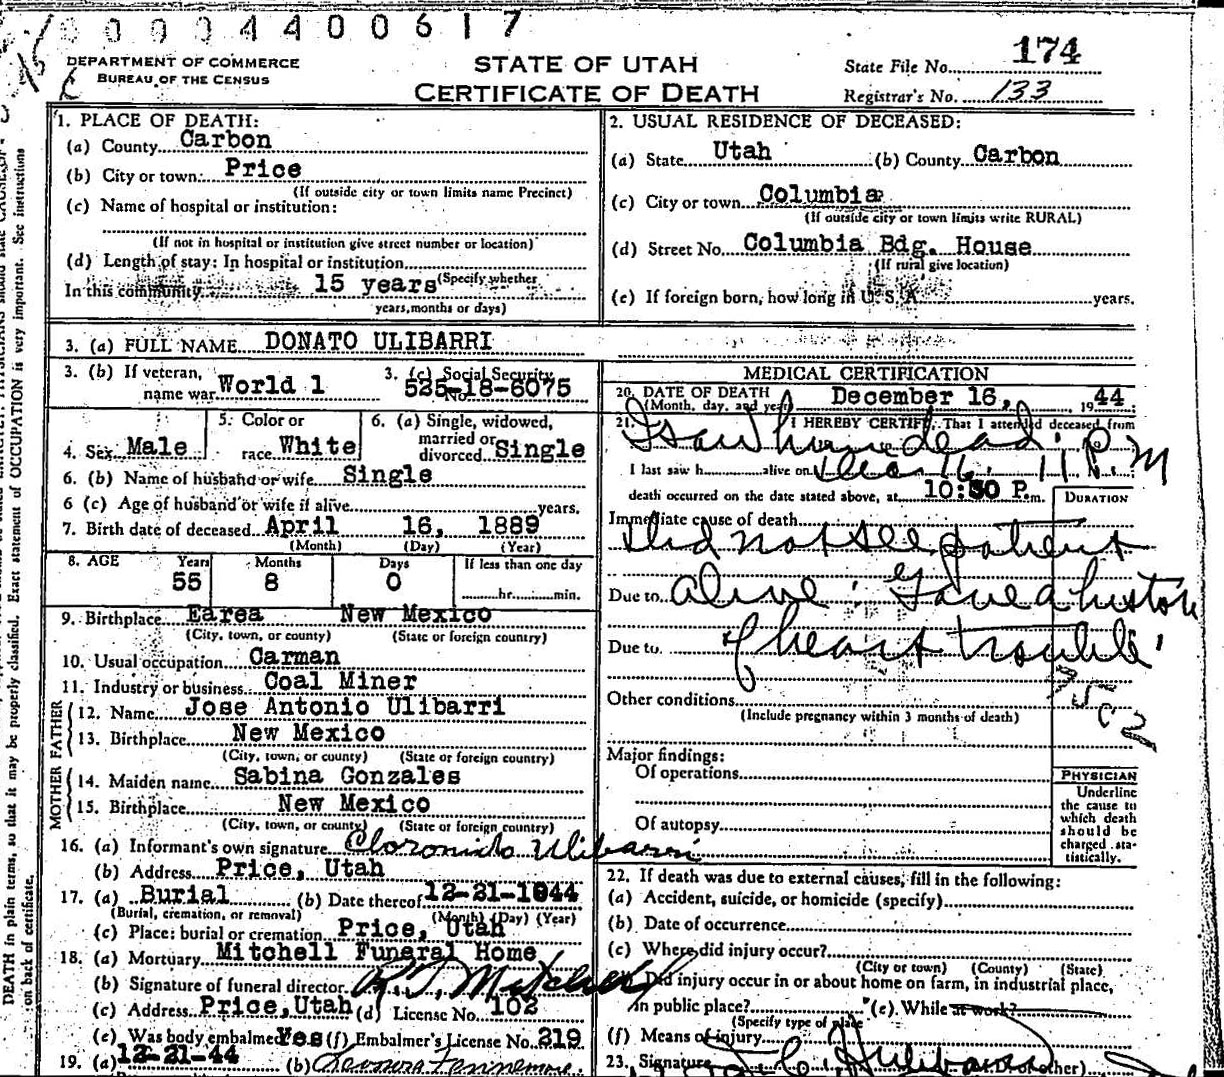 00004400617
DEPARTMENT OF COMMERCE
BUREAU OF THE CENSUS
STATE OF UTAH
CERTIFICATE OF DEATH
State File No. 174
Registrar's No. 133
1. PLACE OF DEATH:
(a) County Carbon
(b) City or town: Price
(If outside city or town limits name Precinct)
(c) Name of hospital or institution:
(If not in hospital or institution give street number or location)
(d) Length of stay: In hospital or institution
In this community 15 years (Specify whether
years, months or days)
2. USUAL RESIDENCE OF DECEASED:
(a) State Utah (b) County Carbon
(c) City or town Columbia
(If outside city or town limits write RURAL)
(d) Street No. Columbia Bdg. House
(If rural give location)
(e) If foreign born, how long in U. S. A. years.
3. (a) FULL NAME DONATO ULIBARRI
3. (b) If veteran, name war World 1
3. (c) Social Security No. 525-18-6075
4. Sex Male
5. Color or race White
6. (a) Single, widowed, married or divorced Single
6. (b) Name of husband or wife Single
6 (c) Age of husband or wife if alive years.
7. Birth date of deceased April 16, 1889
(Month) (Day) (Year)
8. AGE Years 55 Months 8 Days 0 If less than one day hr. min.
9. Birthplace Earea New Mexico
(City, town, or county) (State or foreign country)
10. Usual occupation Carman
11. Industry or business Coal Miner
FATHER
12. Name Jose Antonio Ulibarri
13. Birthplace New Mexico
(City, town, or county) (State or foreign country)
MOTHER
14. Maiden name Sabina Gonzales
15. Birthplace New Mexico
(City, town, or county) (State or foreign country)
16. (a) Informant's own signature Ulibarri
(b) Address Price, Utah
17. (a) Burial (b) Date thereof 12-21-1944
(Burial, cremation, or removal) (Month) (Day) (Year)
(c) Place: burial or cremation Price, Utah
18. (a) Mortuary Mitchell Funeral Home
(b) Signature of funeral director Mitchell
(c) Address Price, Utah (d) License No. 102
(e) Was body embalmed Yes (f) Embalmer's License No. 219
19. (a) 12-21-44 (b)
MEDICAL CERTIFICATION
20. DATE OF DEATH December 16, 1944
(Month, day, and year)
21. I HEREBY CERTIFY, That I attended deceased from
I saw him dead
I last saw h alive on Dec 16. 11 P. M
death occurred on the date stated above, at 10:30 P. m.
DURATION
Immediate cause of death
Did not see patient
Due to alive: Gave a history
Due to of heart trouble
Other conditions
(Include pregnancy within 3 months of death)
Major findings:
Of operations
Of autopsy
PHYSICIAN
Underline
the cause to
which death
should be
charged sta-
tistically.
22. If death was due to external causes, fill in the following:
(a) Accident, suicide, or homicide (specify)
(b) Date of occurrence
(c) Where did injury occur?
(City or town) (County) (State)
Did injury occur in or about home on farm, in industrial place,
in public place? (e) While at work?
(Specify type of place
(f) Means of injury
23. Signature
DEATH in plain terms, so that it may be properly classified. Exact statement of OCCUPATION is very important. See instructions
on back of certificate.